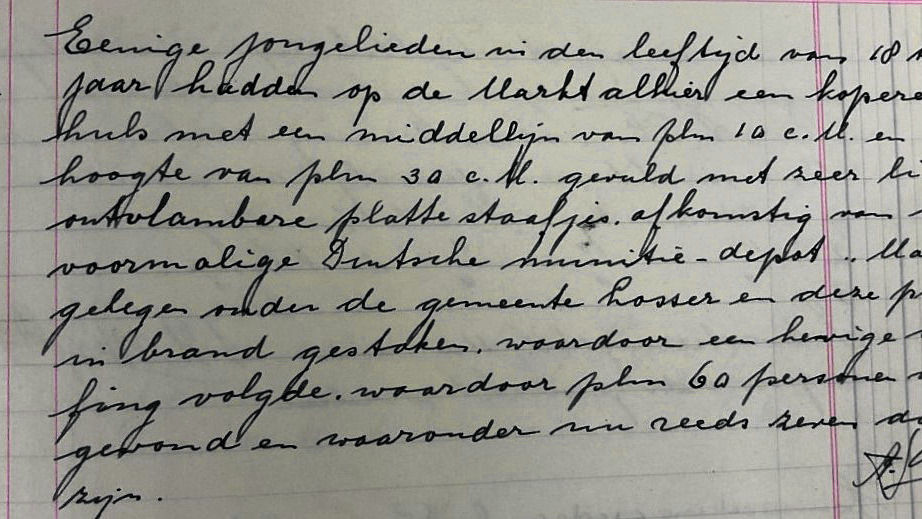 Eenige jongelieden in den leeftijd van 18
jaar hadden op de Markt alhier een kopere
huls met een middellijn van plm 10 c.M. en
hoogte van plm 30 c.M. gevuld met zeer
ontvlambare platte staafjes. afkomstig van
voormalige Duitsche munitie-depot
gelegen onder de gemeente Losser en deze
in brand gestoken. waardoor een hevige
fing volgde. waardoor plm 60 personen
gewond en waaronder nu reeds zeven
zijn.